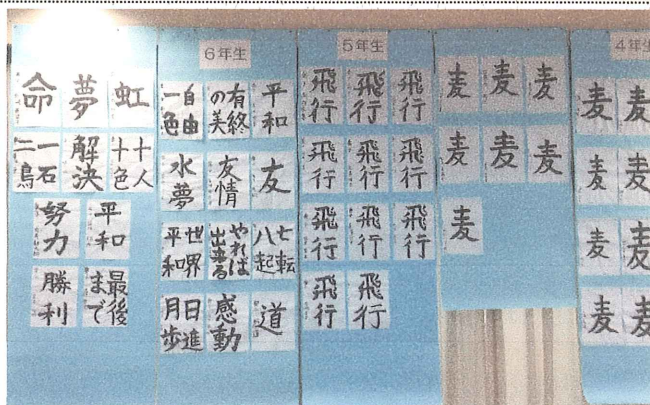 命
夢
虹
一石
二鳥
解決
十人
十色
努力
平和
勝利
最後
まで
6年生
自由
一色
有終
の美
平和
水夢
友情
友
世界
平和
やれば
出来る
七転
八起
日進
月歩
感動
道
5年生
飛行
飛行
飛行
飛行
飛行
飛行
飛行
飛行
飛行
飛行
飛行
麦
麦
麦
麦
麦
麦
麦
4年生
麦
麦
麦
麦
麦
麦
麦
麦